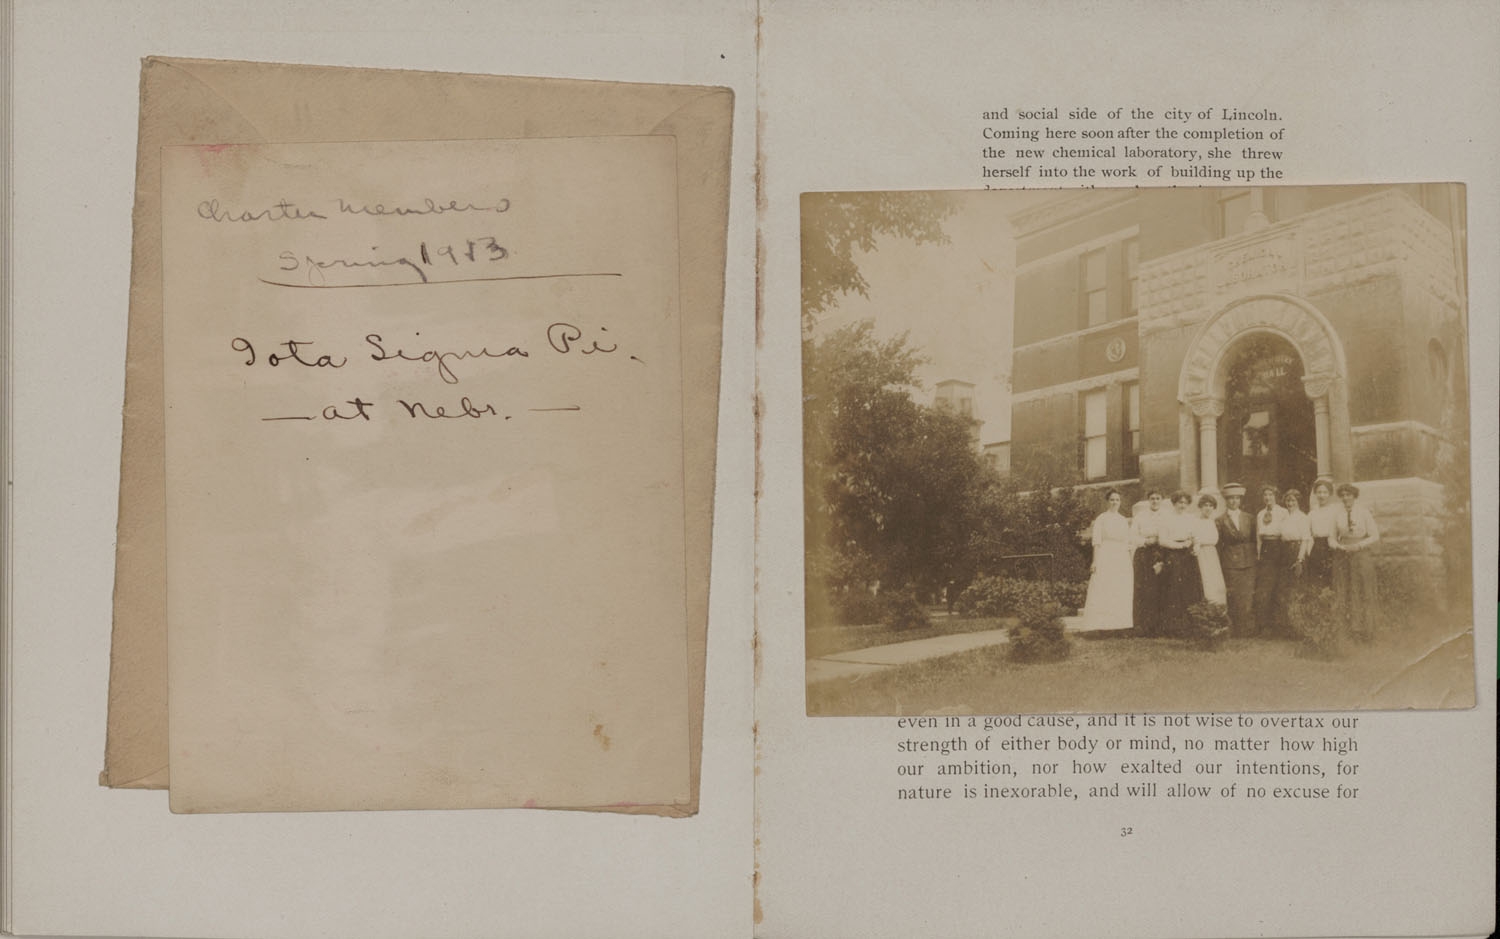 Charter Members
Spring 1913
Iota Sigma Pi.
— at Nebr. —
and social side of the city of Lincoln.
Coming here soon after the completion of
the new chemical laboratory, she threw
herself into the work of building up the
HALL
even in a good cause, and it is not wise to overtax our
strength of either body or mind, no matter how high
our ambition, nor how exalted our intentions, for
nature is inexorable, and will allow of no excuse for
32